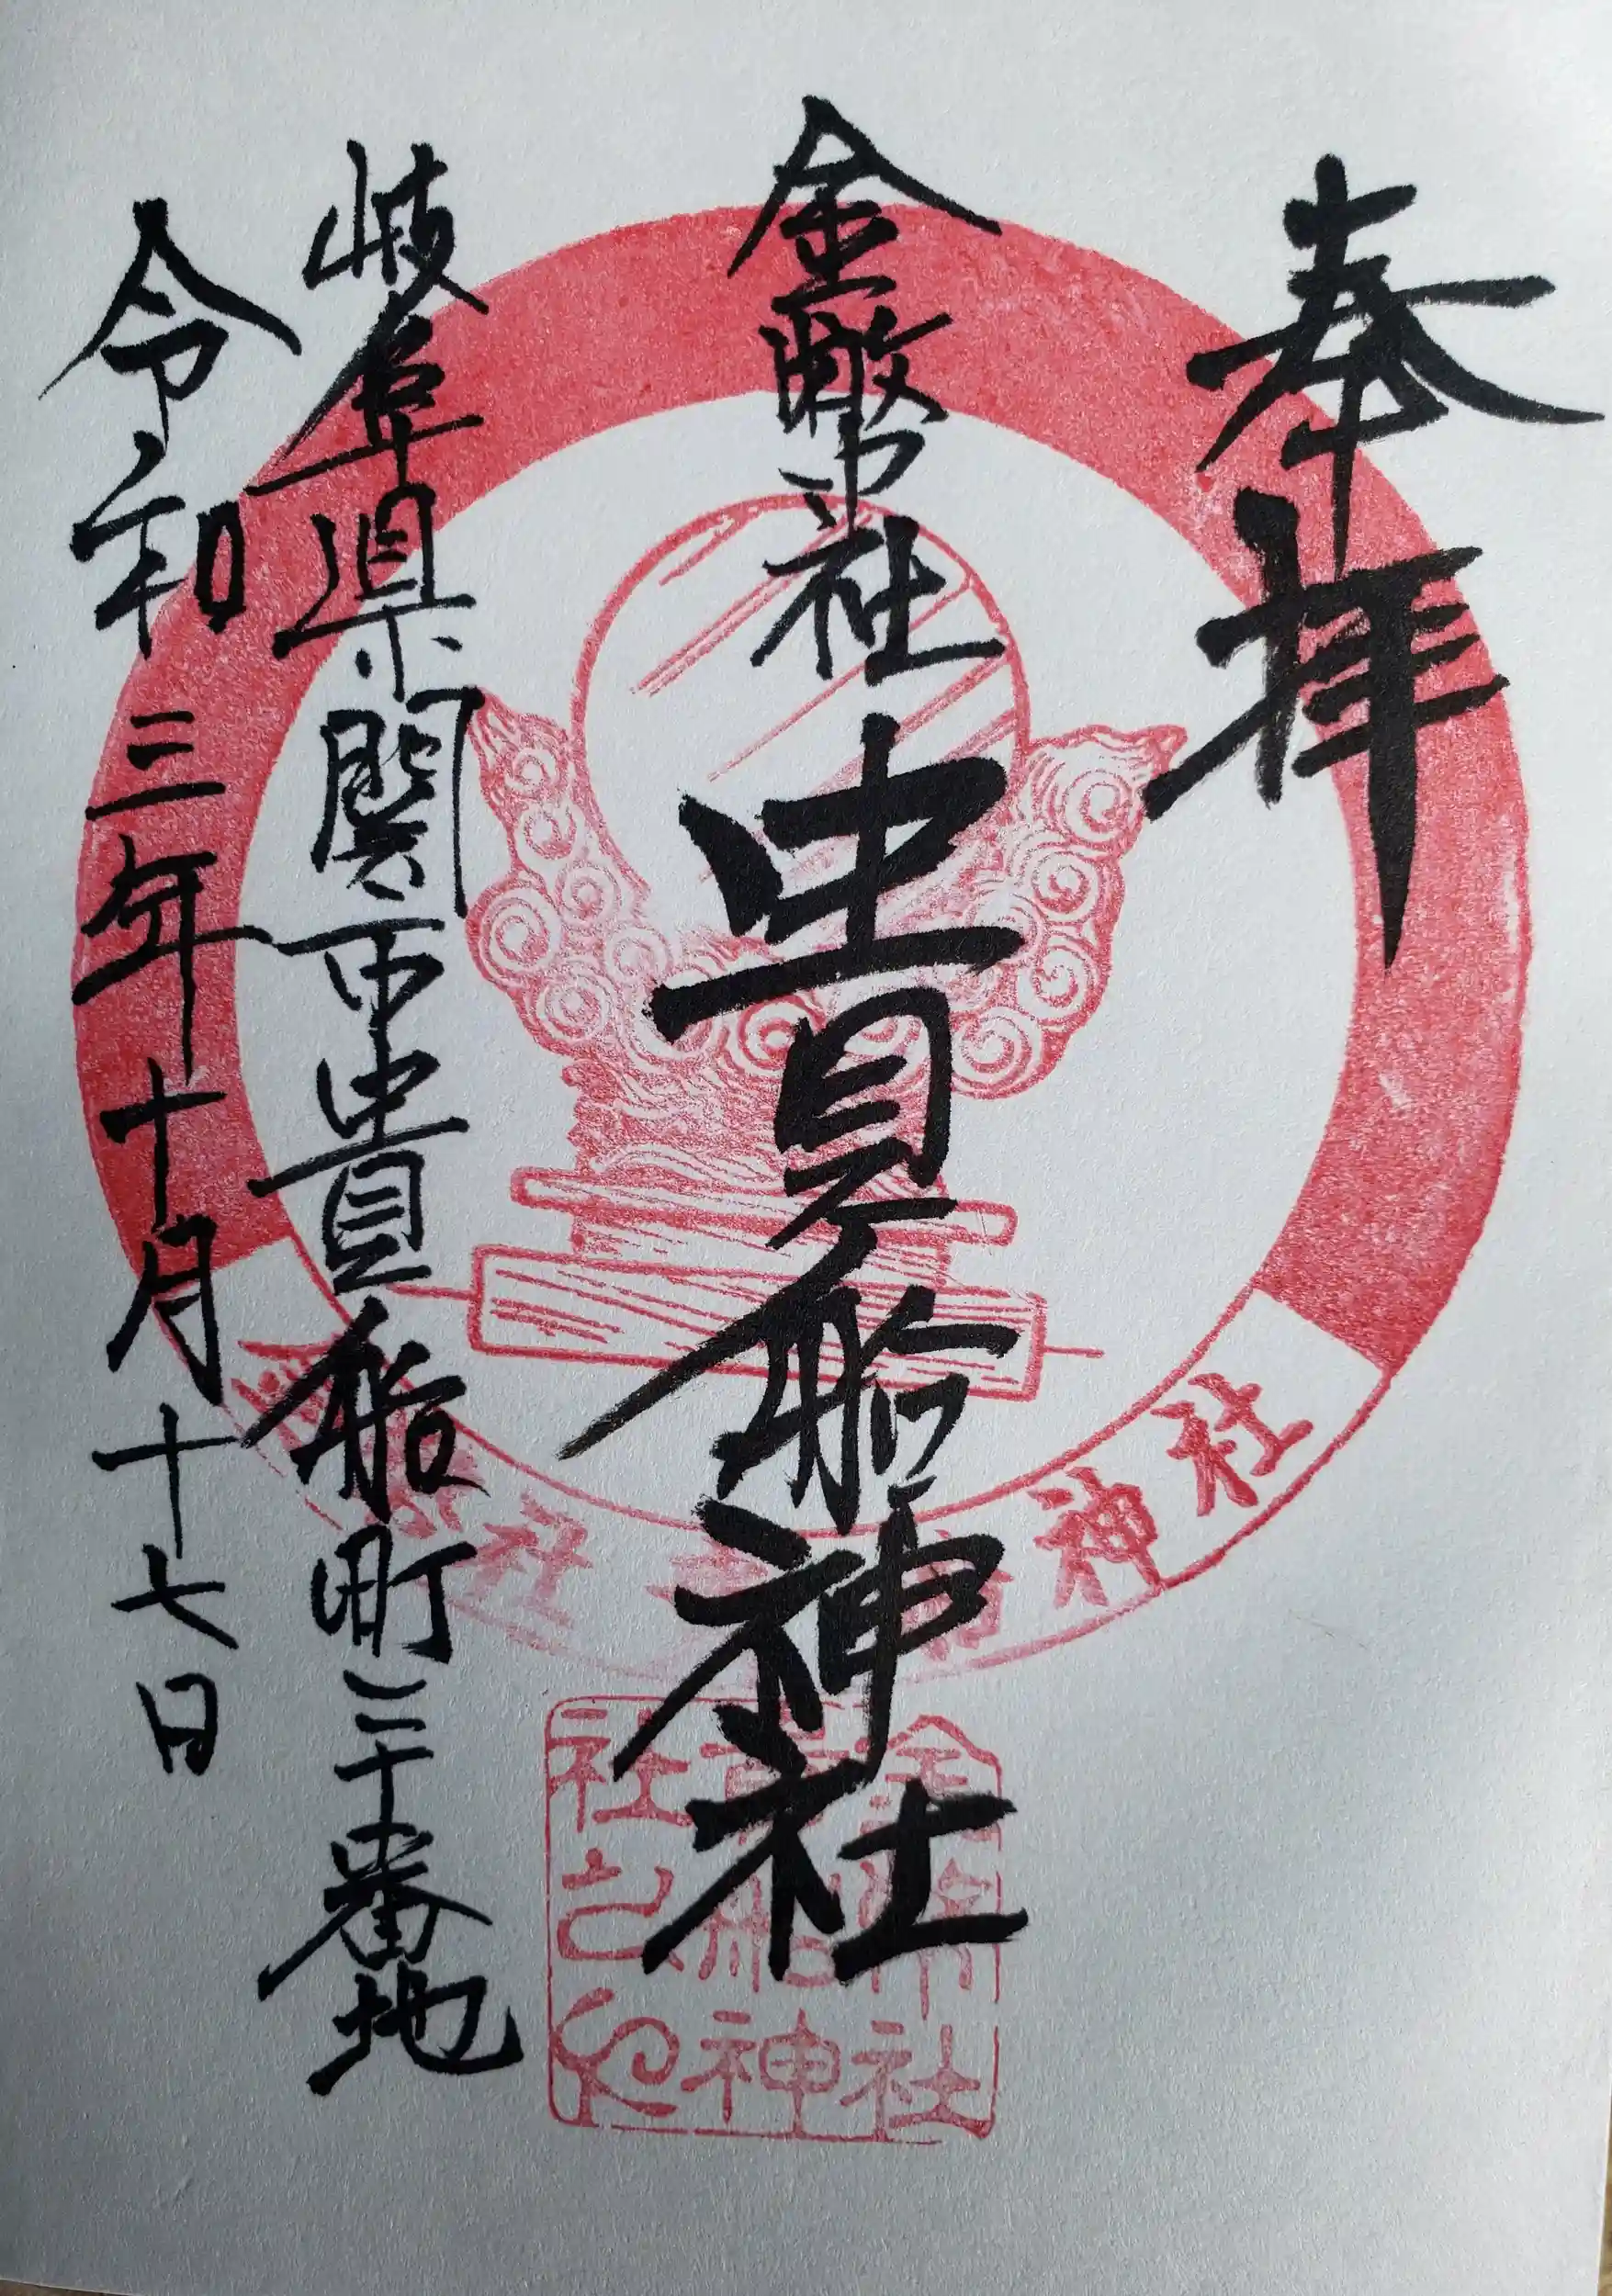 奉拝
金幣社
貴船神社
岐阜県関市貴船町三十番地
令和三年十月十七日
社 神社
金幣社
貴船神
社之印